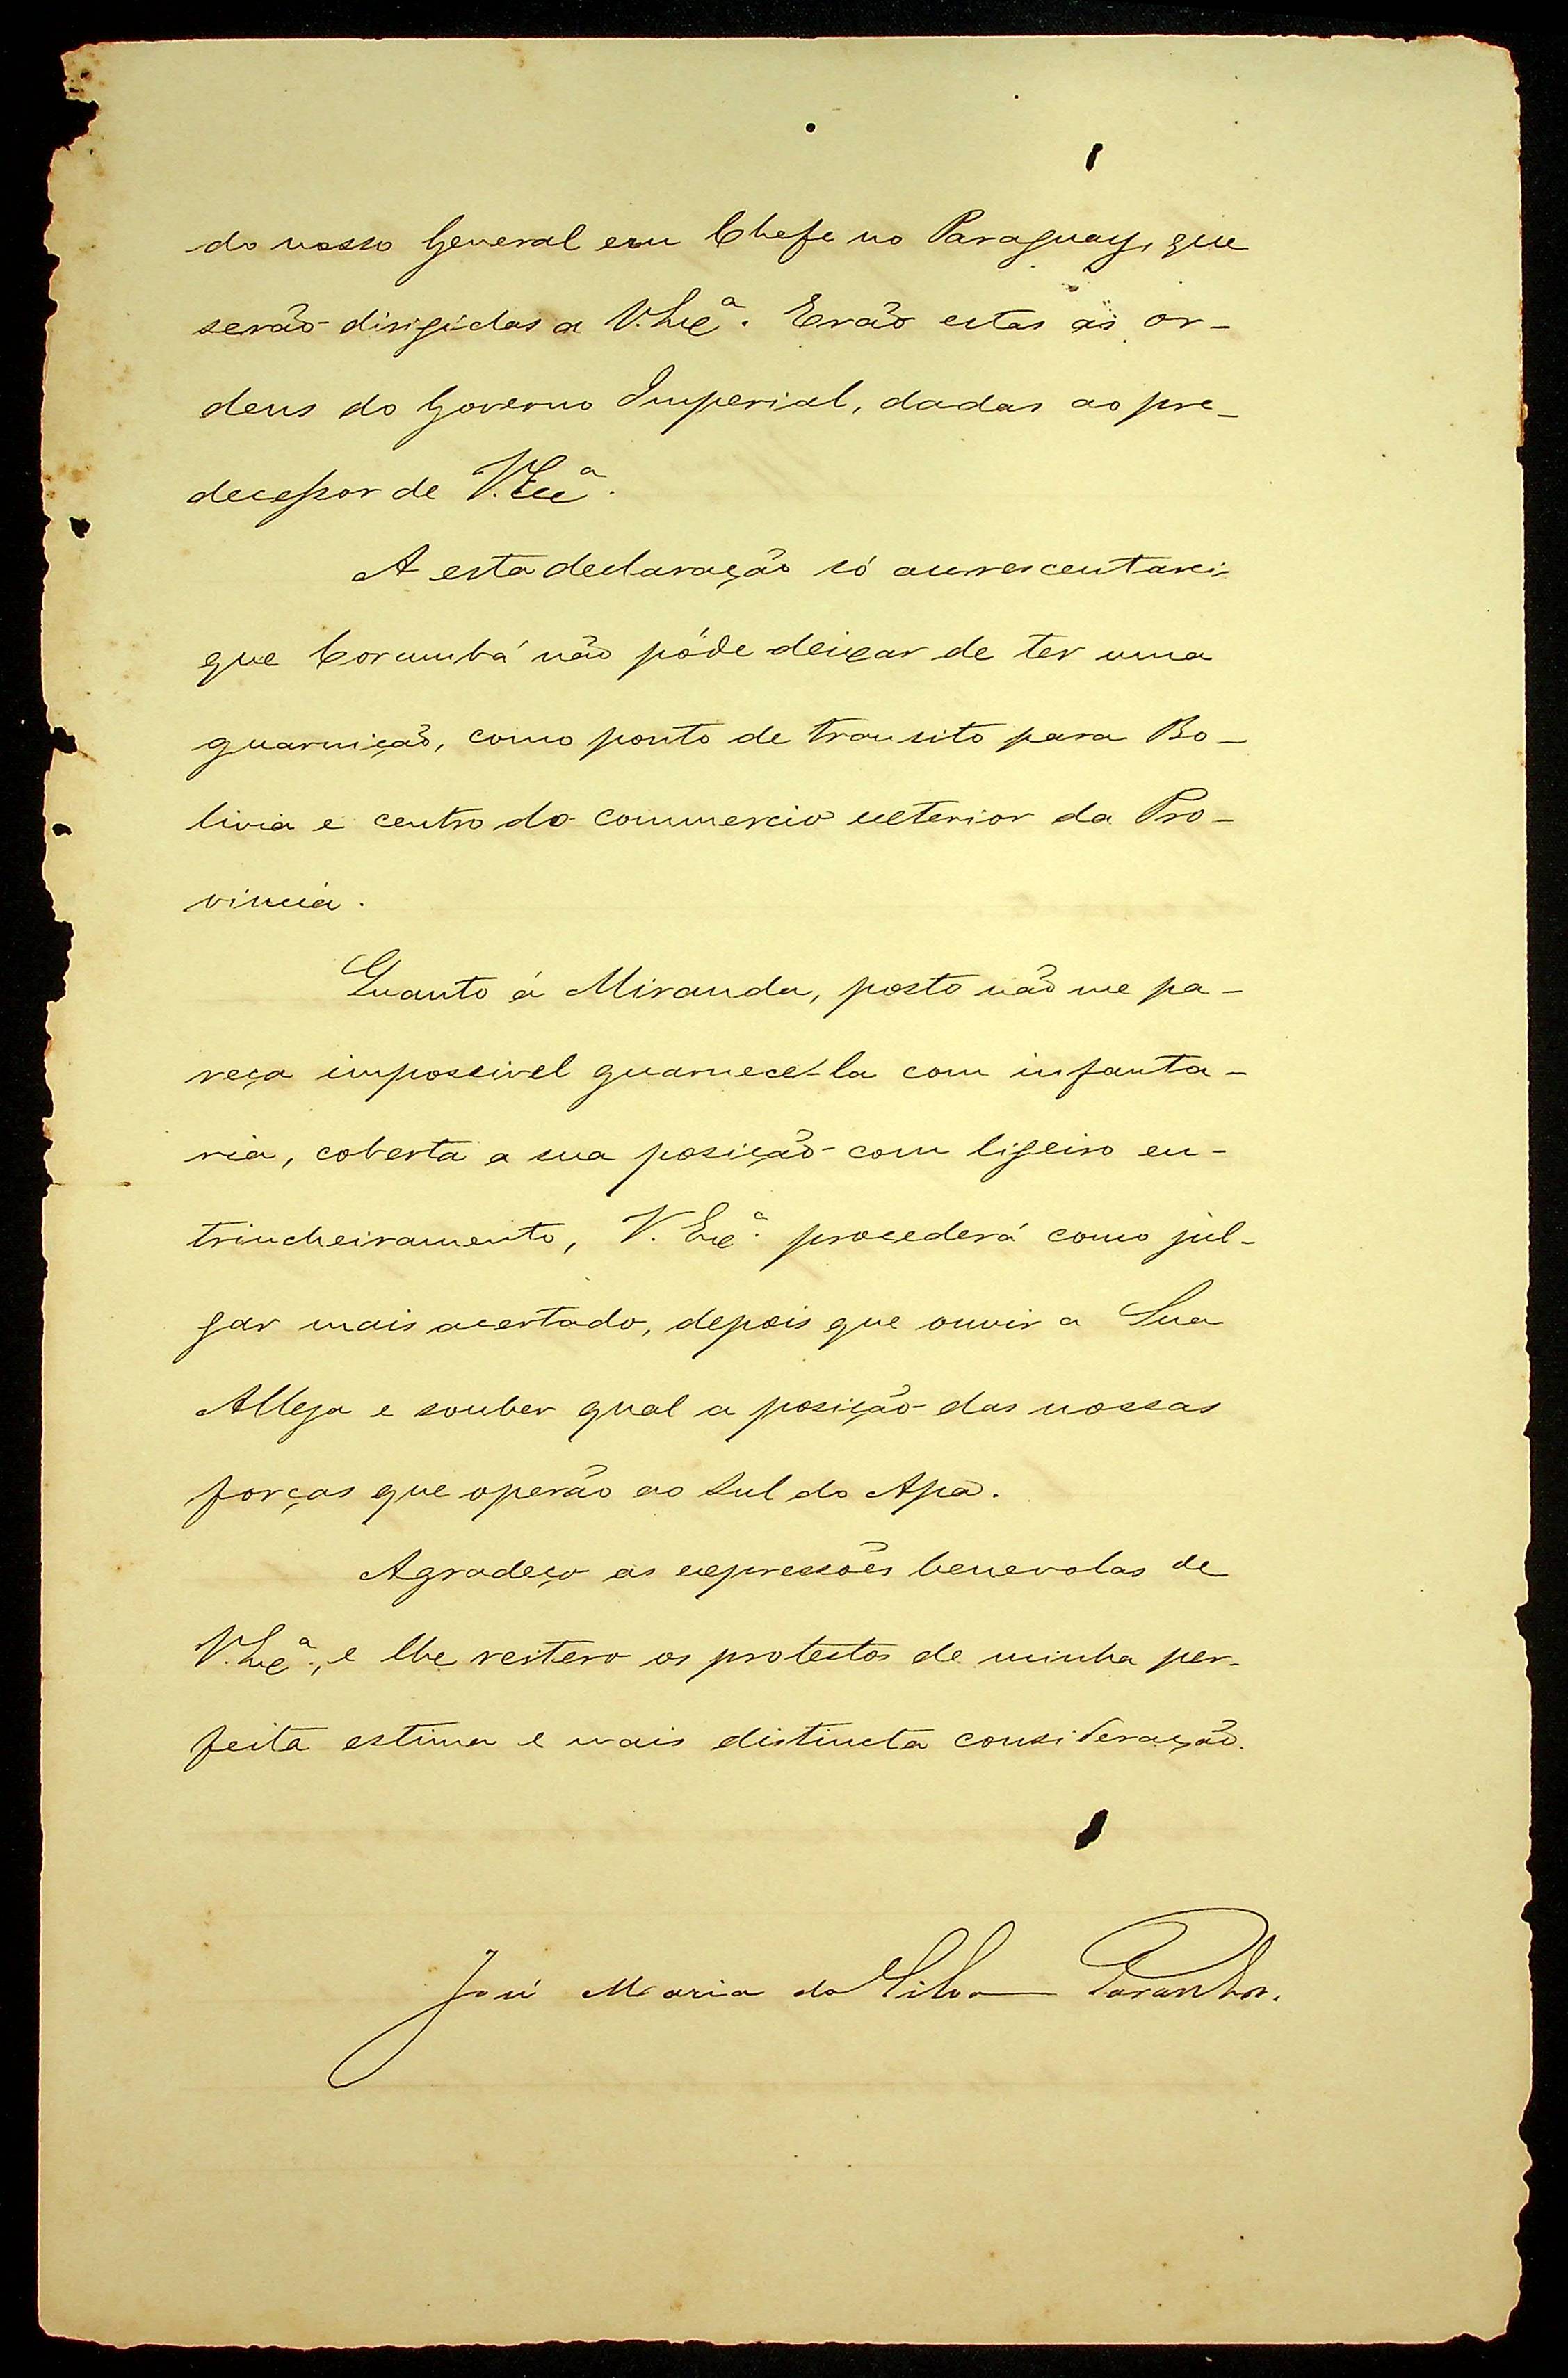 do nosso General em Chefe no Paraguay, que
serão dirigidas a V. Exª. Erão estas as or-
dens do Governo Imperial, dadas ao pre-
decessor de V. Exª.
A esta declaração só accrescentarei
que Corumbá não póde deixar de ter uma
guarnição, como ponto de transito para Bo-
livia e centro do commercio exterior da Pro-
vincia.
Quanto á Miranda, posto não me pa-
reça impossivel guarnecel-la com infanta-
ria, coberta a sua posição com ligeiro en-
trincheiramento, V. Exª. procederá como jul-
gar mais acertado, depois que ouvir a Sua
Alteza e souber qual a posição das nossas
forças que operão ao sul do Apa.
Agradeço as expressões benevolas de
V. Exª., e lhe reitero os protestos de minha per-
feita estima e mais distincta consideração.
José Maria da Silva Paranhos.